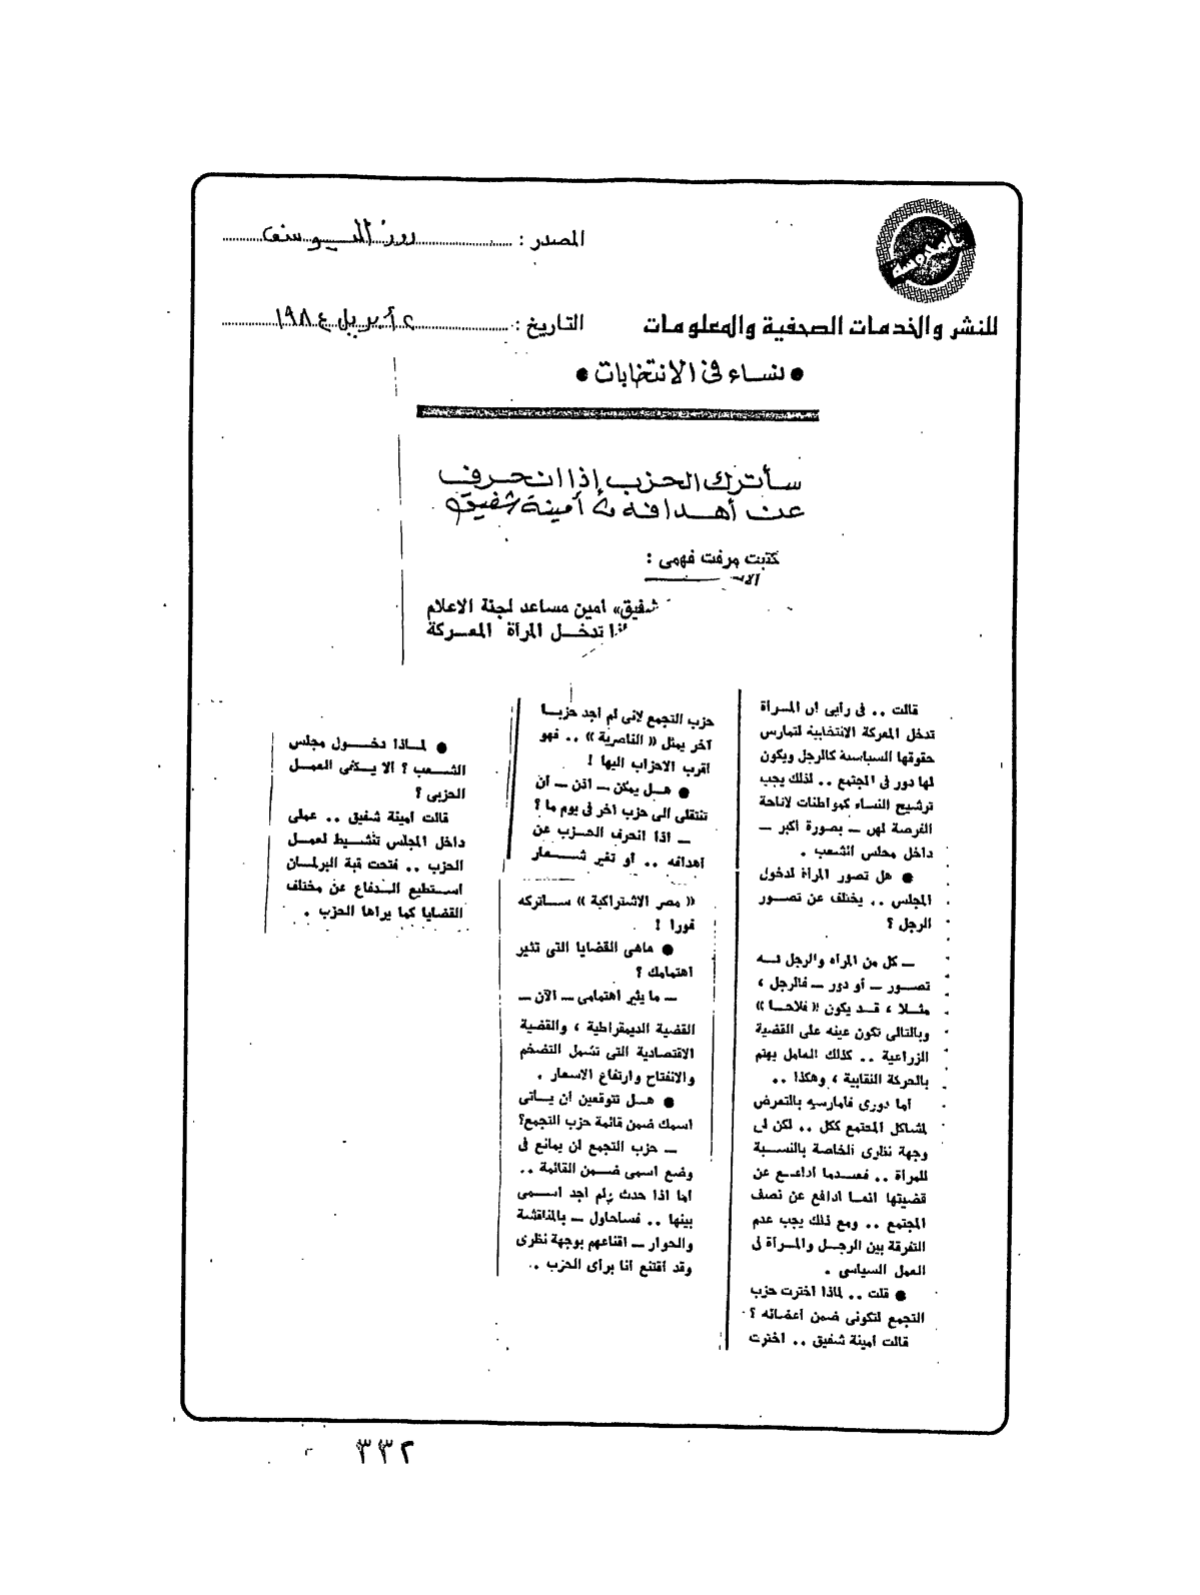 المصدر : روز اليوسف
للنشر والخدمات الصحفية والمعلومات
التاريخ : ٢ أبريل ١٩٨٤
● نساء فى الانتخابات ●
سأترك الحزب إذا انحرف
عن أهدافه أمينة شفيق
كتبت مرفت فهمى :
شفيق» امين مساعد لجنة الاعلام
تدخل المرأة المعركة
قالت .. فى رأيى ان المرأة
تدخل المعركة الانتخابية لتمارس
حقوقها السياسية كالرجل ويكون
لها دور فى المجتمع .. لذلك يجب
ترشيح النساء كمواطنات لاتاحة
الفرصة لهن – بصورة اكبر –
داخل مجلس الشعب .
● هل تصور المرأة لدخول
المجلس .. يختلف عن تصور
الرجل ؟
– كل من المرأه والرجل له
تصور – أو دور – فالرجل ،
مثلا ، قد يكون « فلاحا »
وبالتالى تكون عينه على القضية
الزراعية .. كذلك العامل يهتم
بالحركة النقابية ، وهكذا ..
أما دورى فامارسه بالتعرض
لمشاكل المجتمع ككل .. لكن لى
وجهة نظرى الخاصة بالنسبة
للمرأة .. فعندما أدافع عن
قضيتها انما ادافع عن نصف
المجتمع .. ومع ذلك يجب عدم
التفرقة بين الرجل والمرأة فى
العمل السياسى .
● قلت .. لماذا اخترت حزب
التجمع لتكونى ضمن أعضائه ؟
قالت امينة شفيق .. اخترت
حزب التجمع لانى لم اجد حزبا
آخر يمثل « الناصرية » .. فهو
اقرب الاحزاب اليها !
● هل يمكن – اذن – أن
تنتقلى الى حزب اخر فى يوم ما ؟
– اذا انحرف الحزب عن
اهدافه .. أو تغير شعار
« مصر الاشتراكية » سأتركه
فورا !
● ماهى القضايا التى تثير
اهتمامك ؟
– ما يثير اهتمامى – الآن –
القضية الديمقراطية ، والقضية
الاقتصادية التى تشمل التضخم
والانفتاح وارتفاع الاسعار .
● هل تتوقعين ان يأتى
اسمك ضمن قائمة حزب التجمع؟
– حزب التجمع لن يمانع فى
وضع اسمى ضمن القائمة ..
اما اذا حدث ولم اجد اسمى
بينها .. فسأحاول – بالمناقشة
والحوار – اقناعهم بوجهة نظرى
وقد اقتنع أنا برأى الحزب ..
● لماذا دخول مجلس
الشعب ؟ ألا يكفى العمل
الحزبى ؟
قالت امينة شفيق .. عملى
داخل المجلس تنشيط لعمل
الحزب .. فتحت قبة البرلمان
استطيع الدفاع عن مختلف
القضايا كما يراها الحزب .
٣٣٢